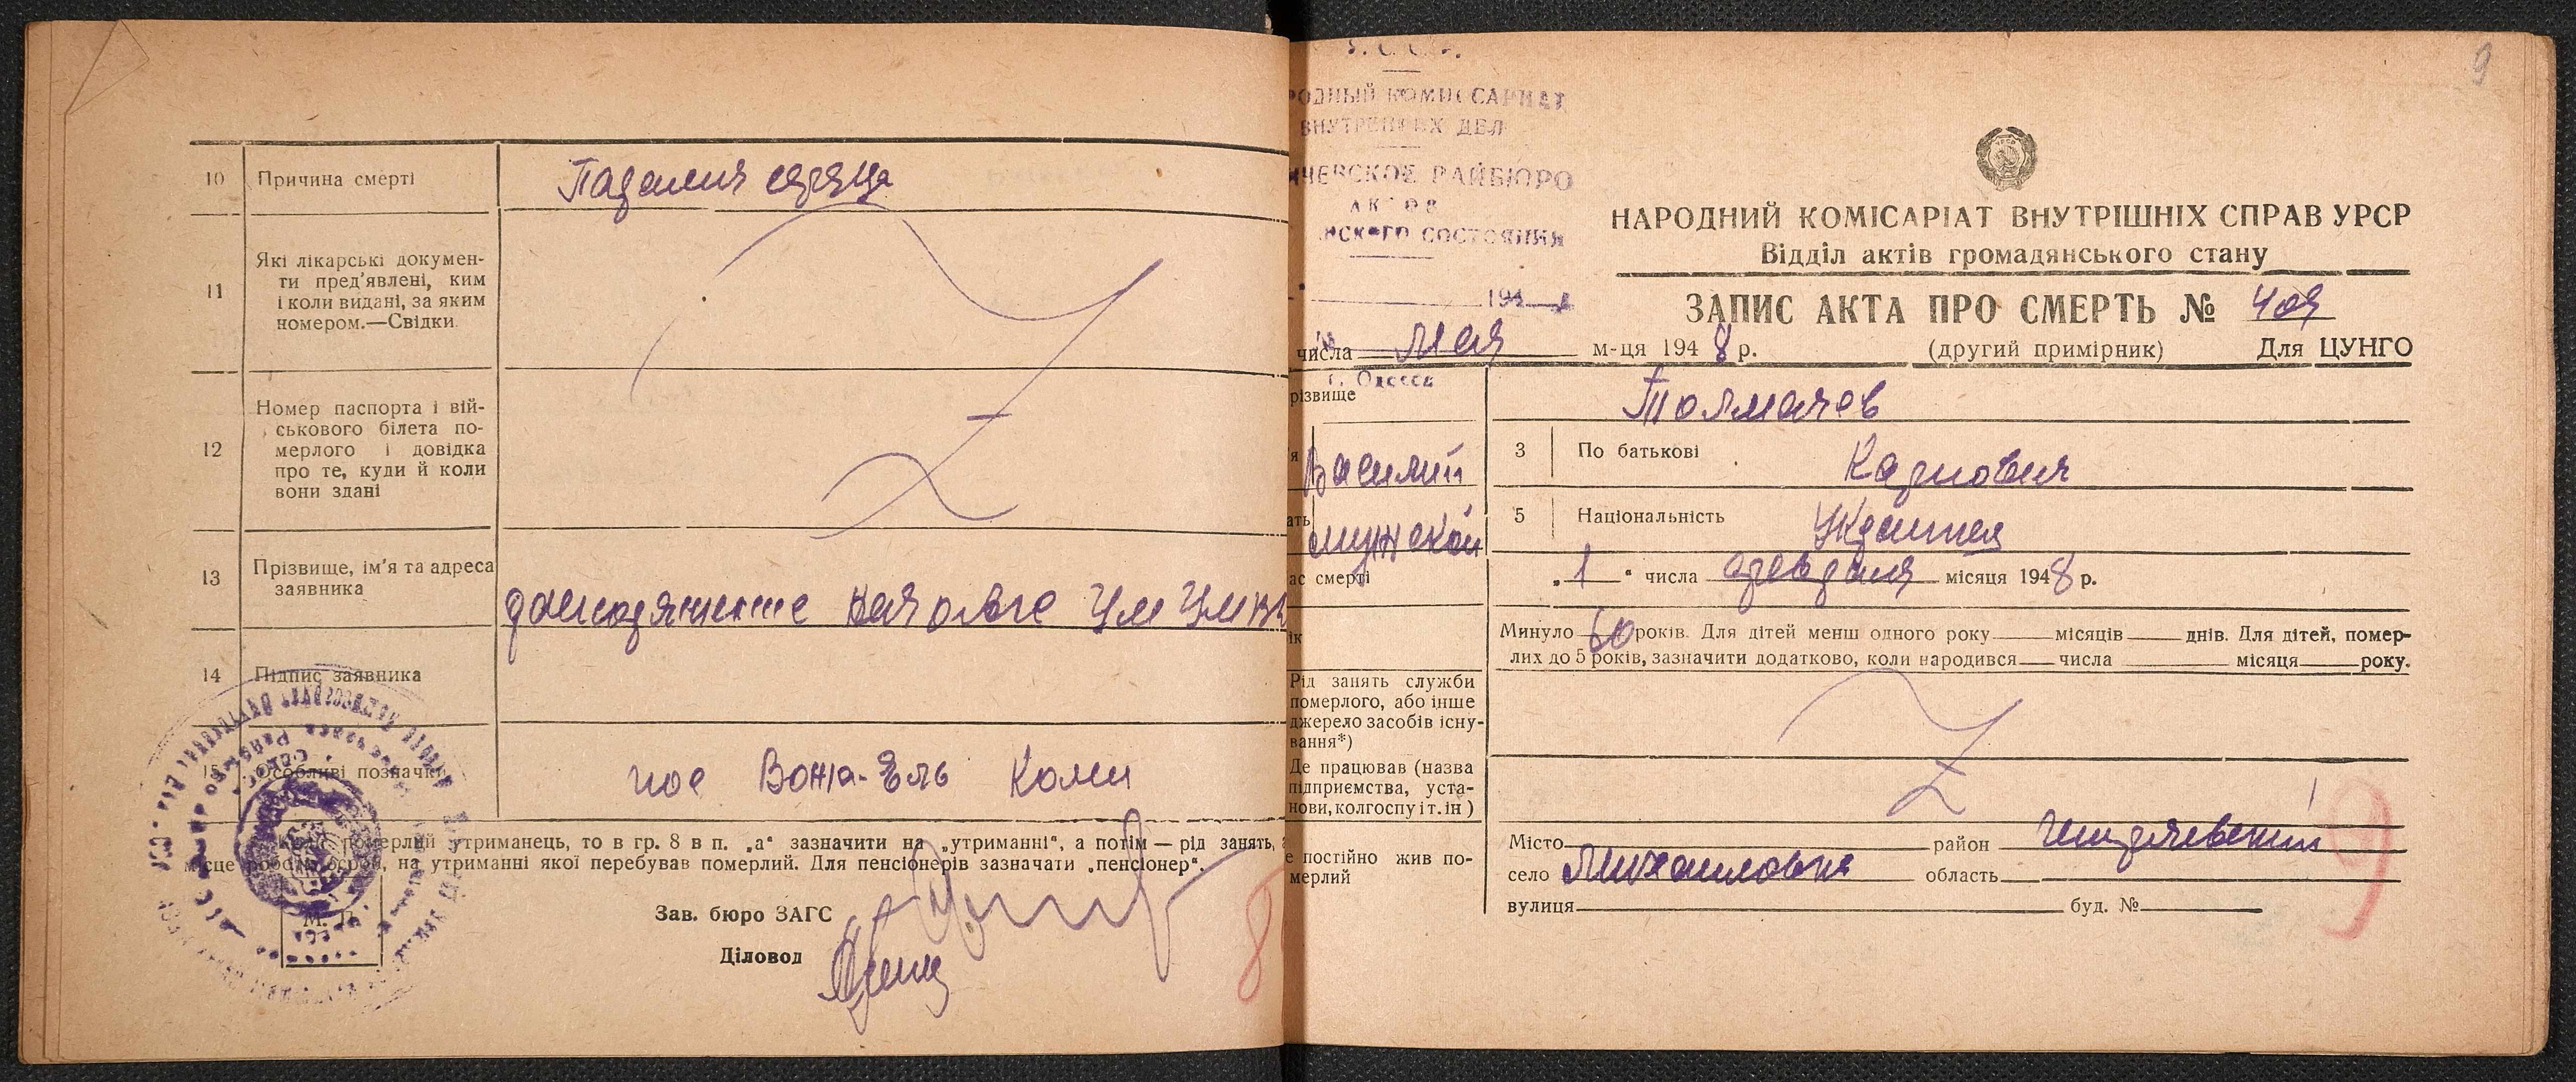 10 Причина смерті
Падения сердца
11 Які лікарські докумен-
ти пред'явлені, ким
і коли видані, за яким
номером.—Свідки
12 Номер паспорта і вій-
ськового білета по-
мерлого і довідка
про те, куди й коли
вони здані
13 Прізвище, ім'я та адреса
заявника
14 Підпис заявника
15 Особливі позначки
пос Вожа-Ель Коми
померлий утриманець, то в гр. 8 в п. „а“ зазначити на „утриманні“, а потім — рід занять,
місце роботи особи, на утриманні якої перебував померлий. Для пенсіонерів зазначати „пенсіонер“.
Зав. бюро ЗАГС
Діловод
М. П.
8
9
РОДНЫЙ КОМИССАРИАТ
ВНУТРЕННИХ ДЕЛ
ИЧЕВСКОЕ РАЙБЮРО
АКТОВ
НСКОГО СОСТОЯНИЯ
194
г. Одесса
НАРОДНИЙ КОМІСАРІАТ ВНУТРІШНІХ СПРАВ УРСР
Відділ актів громадянського стану
ЗАПИС АКТА ПРО СМЕРТЬ № 409
числа мая м-ця 1948 р. (другий примірник) Для ЦУНГО
різвище Толмачев
я Василий 3 По батькові Карпович
ать мужской 5 Національність Украинец
ас смерті „1“ числа февраля місяця 1948 р.
ік Минуло 60 років. Для дітей менш одного року місяців днів. Для дітей, помер-
лих до 5 років, зазначити додатково, коли народився числа місяця року.
Рід занять служби
померлого, або інше
джерело засобів існу-
вання*)
Де працював (назва
підприємства, уста-
нови, колгоспу і т. ін)
е постійно жив по-
мерлий
Місто район
село Михайловка область
вулиця буд. №
9